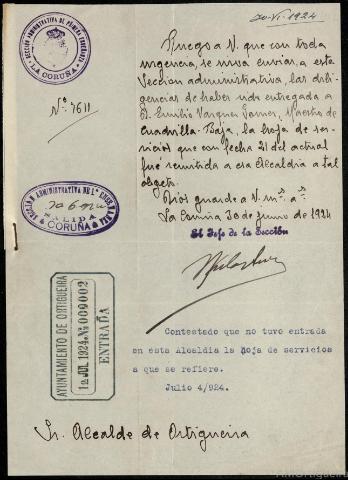 30-VI-1924
SECCIÓN ADMINISTRATIVA DE PRIMERA ENSEÑANZA
LA CORUÑA
Nº 7611
Ruego a V. que con toda
urgencia, se sirva enviar, a esta
Sección administrativa, las dili-
gencias de haber sido entregada a
D. Emilio Vazquez, Maestro de
Cuadrilla-Baja, la hoja de ser-
vicios que con fecha 21 del actual
fué remitida a esa Alcaldia a tal
objeto.
Dios guarde a V. mˢ. aˢ.
La Coruña 30 de junio de 1924
El Jefe de la Sección
SECCIÓN ADMINISTRATIVA DE 1.ª ENSEÑANZA
SALIDA
CORUÑA
AYUNTAMIENTO DE ORTIGUEIRA
1a JUL 1924 Nº 000002
ENTRADA
Contestado que no tuvo entrada
en esta Alcaldia la hoja de servicios
a que se refiere.
Julio 4/924.
Sr. Alcalde de Ortigueira